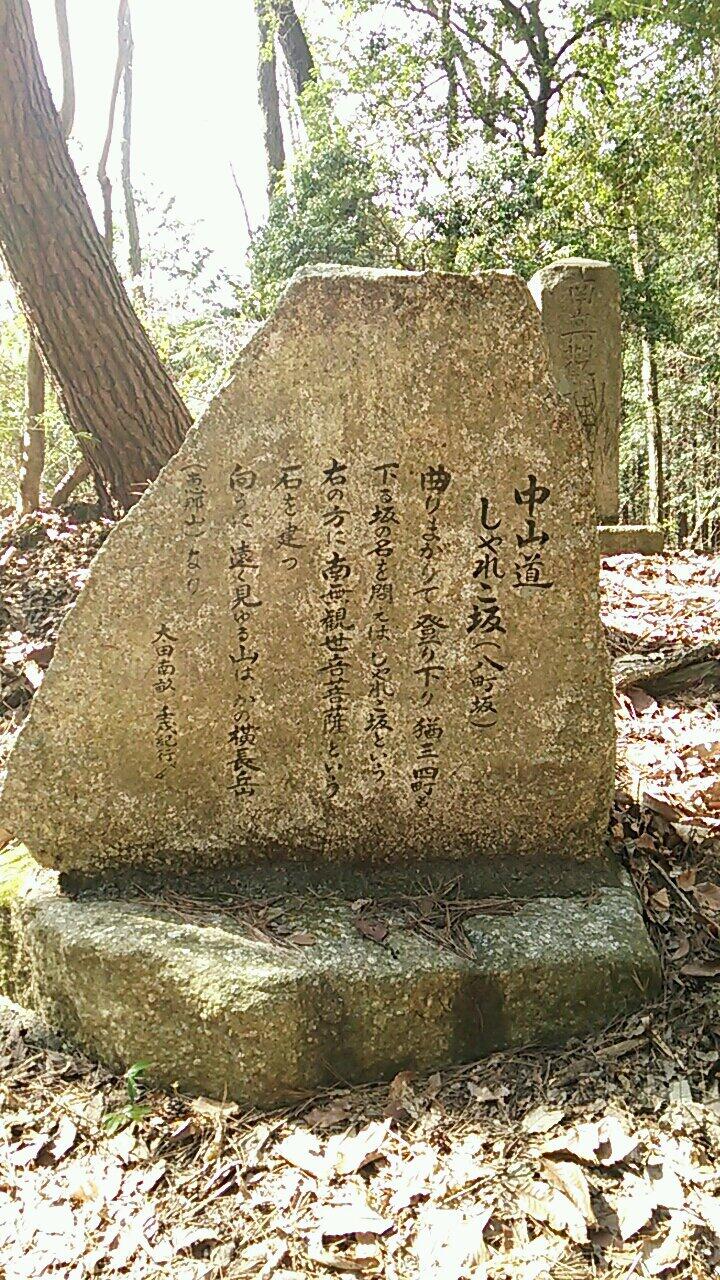 中山道
しゃれこ坂（八町坂）
曲りまがりて登り下り猶三四町も
下る坂の名を問えばしゃれこ坂という
右の方に南無観世音菩薩という
石を建つ
向うに遠く見ゆる山はかの横長岳
（恵那山）なり
大田南畝 壬戌紀行〆
南無観